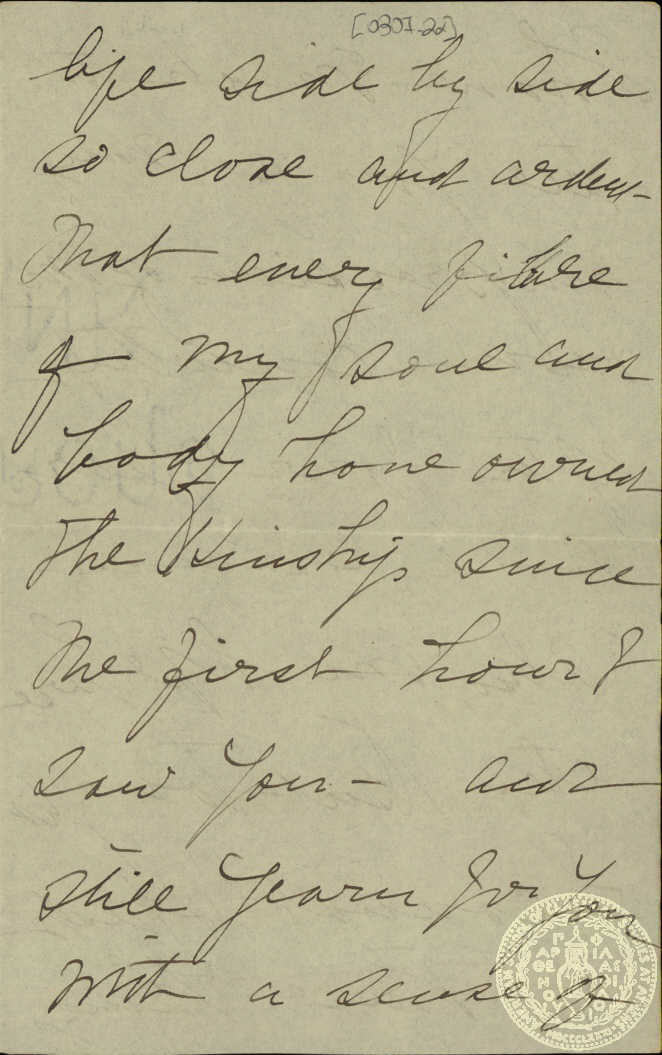 [0307-22]
life side by side
so close and ardent
that every fibre
of my soul and
body have owned
the Kinship since
the first hour I
saw you – and
still yearn for you
with a sense of